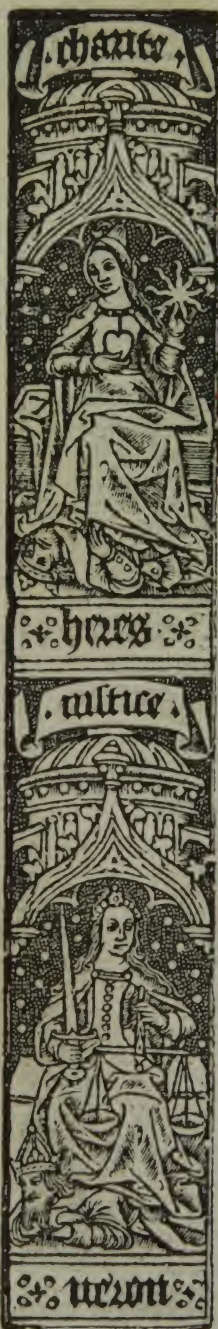 . charite .
heres
. iustice .
neron